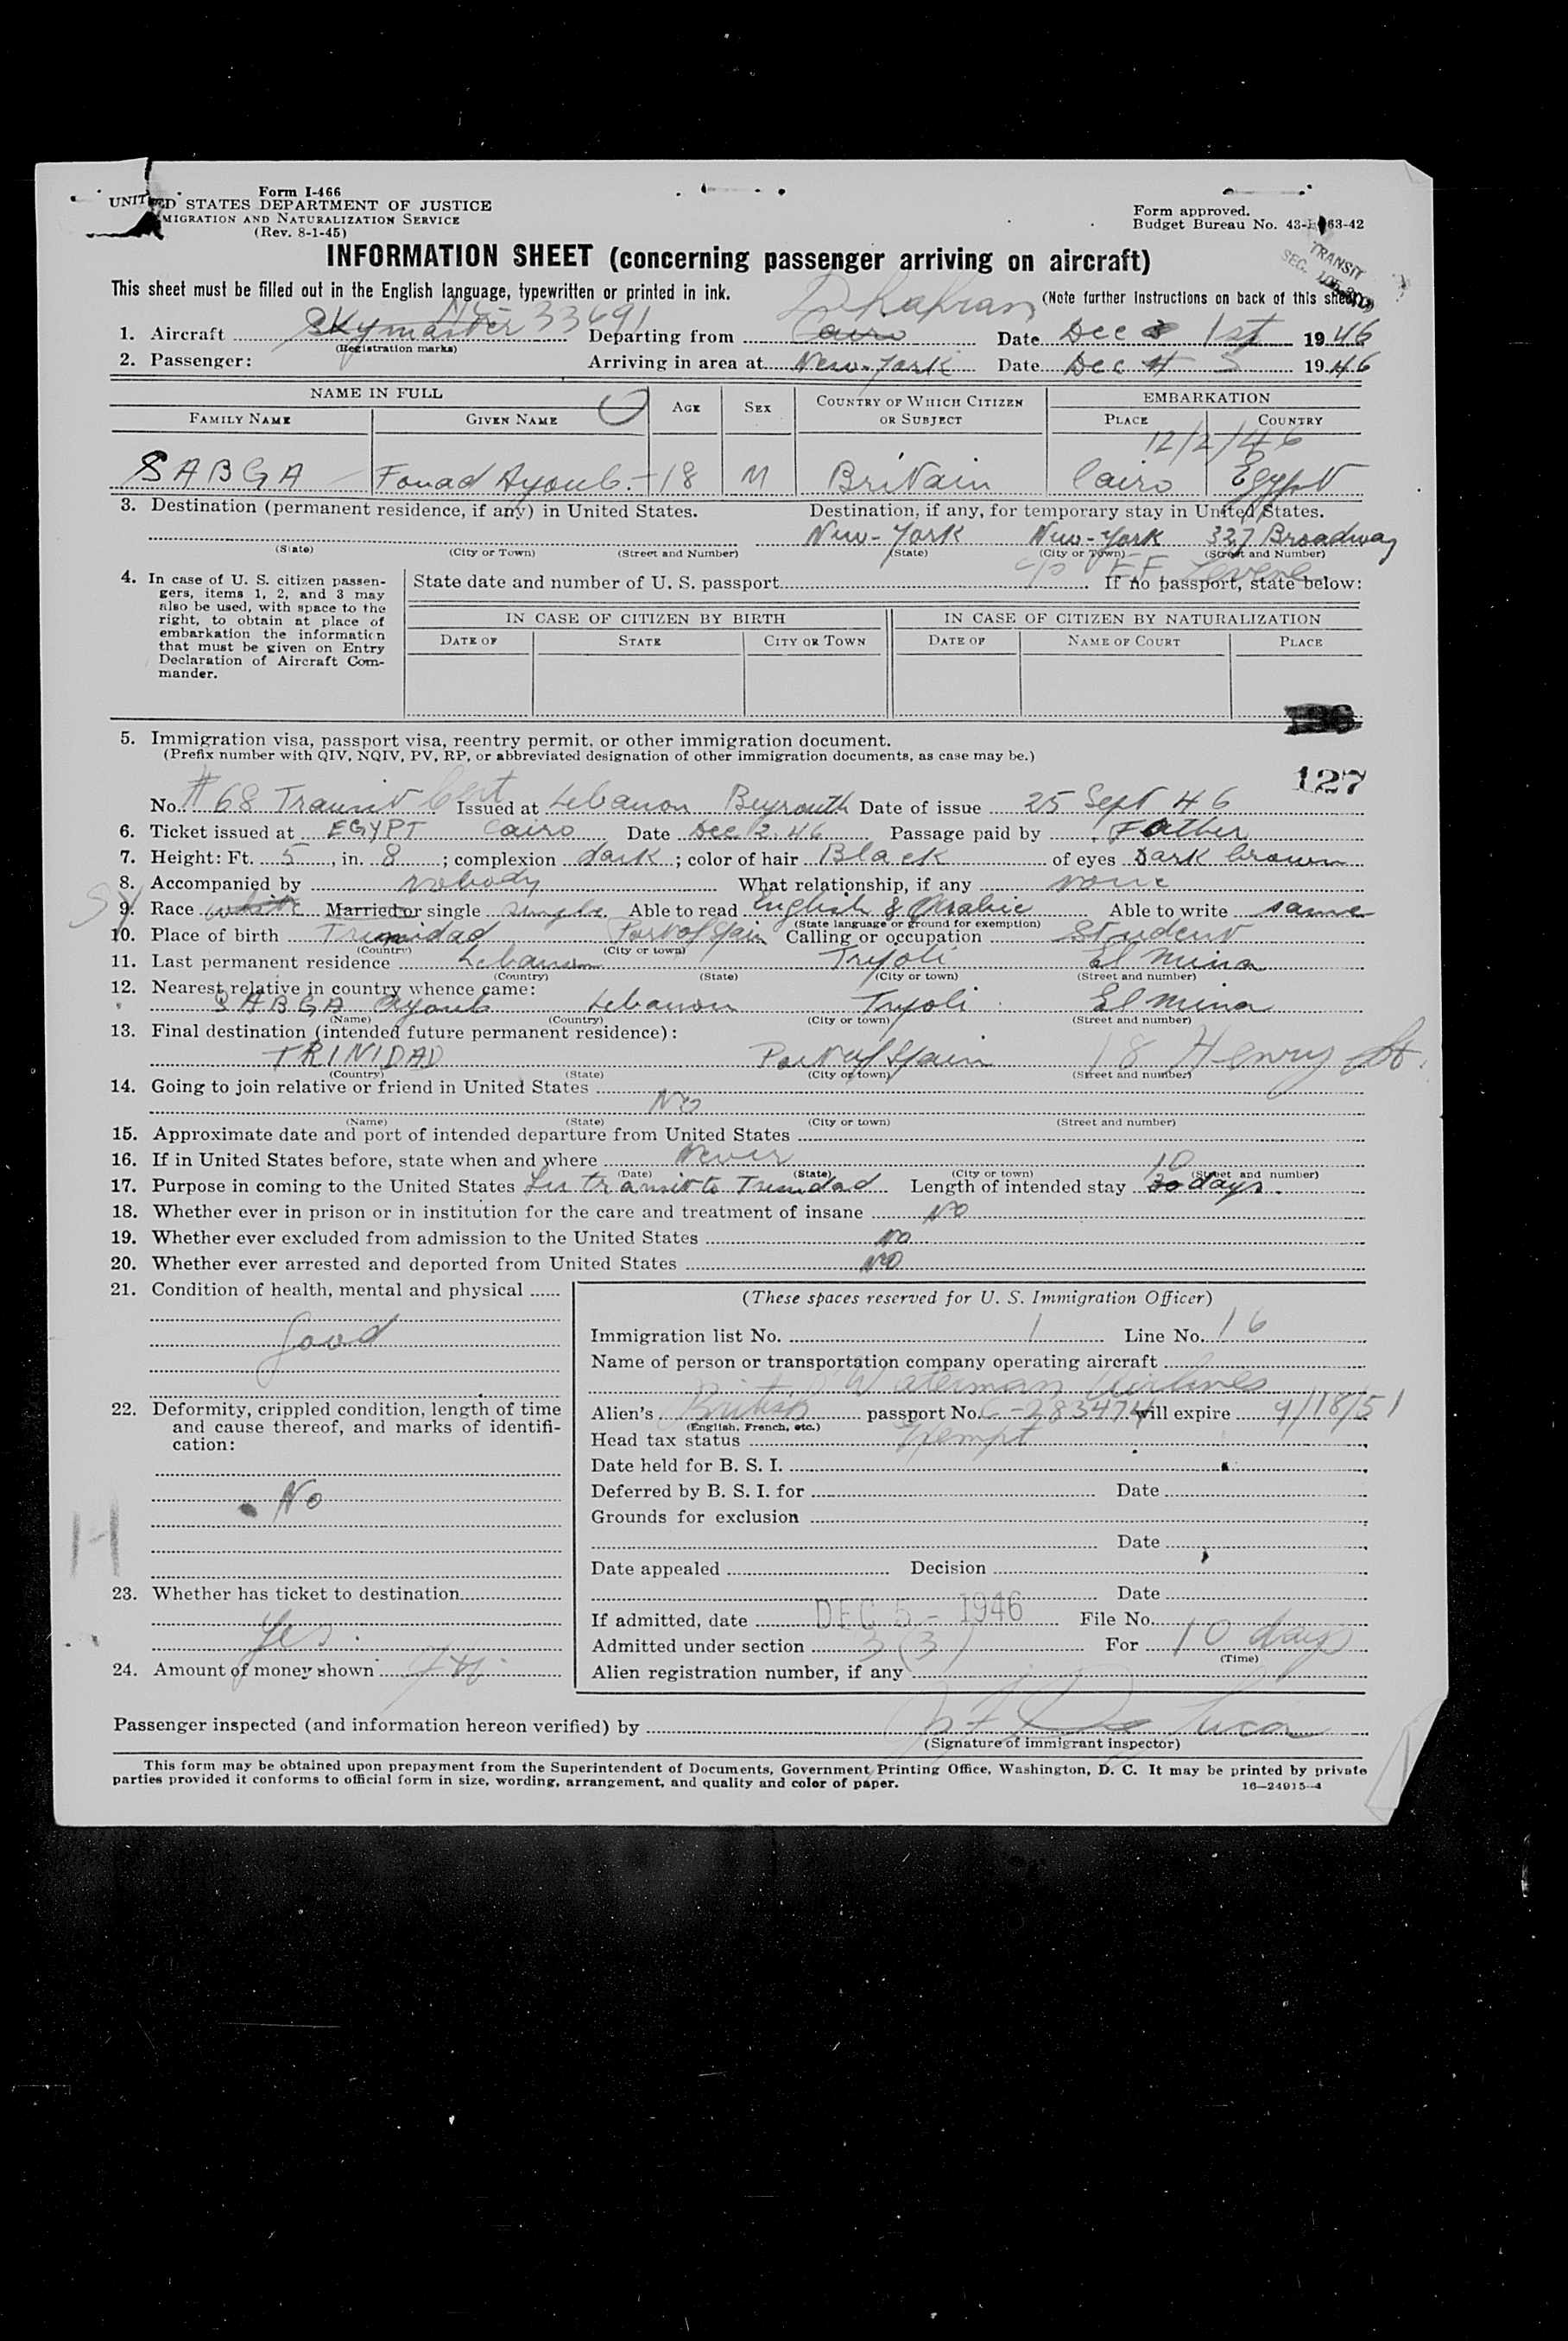 Form I-466
UNITED STATES DEPARTMENT OF JUSTICE
MIGRATION AND NATURALIZATION SERVICE
(Rev. 8-1-45)
Form approved.
Budget Bureau No. 43- 63-42
TRANSIT
SEC.
INFORMATION SHEET (concerning passenger arriving on aircraft)
This sheet must be filled out in the English language, typewritten or printed in ink.
(Note further instructions on back of this sheet)
Dhahran
1. Aircraft Skymaster 33691 Departing from Cairo Date Dec 3 1st 1946
(Registration marks)
2. Passenger: Arriving in area at New-York Date Dec 4 5 1946
NAME IN FULL AGE SEX COUNTRY OF WHICH CITIZEN OR SUBJECT EMBARKATION
FAMILY NAME GIVEN NAME PLACE COUNTRY
12/2/46
SABGA Fouad Ayoub. 18 M Britain Cairo Egypt
3. Destination (permanent residence, if any) in United States. Destination, if any, for temporary stay in United States.
New-York New-York 327 Broadway
(State) (City or Town) (Street and Number) (State) (City or Town) (Street and Number)
c/o
4. In case of U. S. citizen passengers, items 1, 2, and 3 may also be used, with space to the right, to obtain at place of embarkation the information that must be given on Entry Declaration of Aircraft Commander.
State date and number of U. S. passport If no passport, state below:
IN CASE OF CITIZEN BY BIRTH IN CASE OF CITIZEN BY NATURALIZATION
DATE OF STATE CITY OR TOWN DATE OF NAME OF COURT PLACE
5. Immigration visa, passport visa, reentry permit, or other immigration document.
(Prefix number with QIV, NQIV, PV, RP, or abbreviated designation of other immigration documents, as case may be.)
127
No. #68 Transit Cert Issued at Lebanon Beyrouth Date of issue 25 Sept 46
6. Ticket issued at EGYPT Cairo Date Dec 2. 46 Passage paid by Father
7. Height: Ft. 5, in. 8; complexion dark; color of hair Black of eyes Dark brown
8. Accompanied by nobody What relationship, if any none
Sy
9. Race white Married or single single Able to read English & Arabic Able to write same
(State language or ground for exemption)
10. Place of birth Trinidad Port of Spain Calling or occupation Student
(Country) (City or town)
11. Last permanent residence Lebanon Tripoli El Mina
(Country) (State) (City or town) (Street and number)
12. Nearest relative in country whence came:
SABGA Ayoub Lebanon Tripoli El Mina
(Name) (Country) (City or town) (Street and number)
13. Final destination (intended future permanent residence):
TRINIDAD Port of Spain 18 Henry St.
(Country) (State) (City or town) (Street and number)
14. Going to join relative or friend in United States
No
(Name) (State) (City or town) (Street and number)
15. Approximate date and port of intended departure from United States
16. If in United States before, state when and where Never
(Date) (State) (City or town) (Street and number)
10
17. Purpose in coming to the United States In transit to Trinidad Length of intended stay 30 days.
18. Whether ever in prison or in institution for the care and treatment of insane NO
19. Whether ever excluded from admission to the United States no
20. Whether ever arrested and deported from United States NO
21. Condition of health, mental and physical
Good
22. Deformity, crippled condition, length of time and cause thereof, and marks of identification:
No
H
23. Whether has ticket to destination
Yes.
24. Amount of money shown
(These spaces reserved for U. S. Immigration Officer)
Immigration list No. 1 Line No. 16
Name of person or transportation company operating aircraft
Waterman Airlines
Alien's British passport No. C-283474 will expire 9/18/51
(English, French, etc.)
Head tax status Exempt
Date held for B. S. I.
Deferred by B. S. I. for Date
Grounds for exclusion
Date
Date appealed Decision
Date
If admitted, date DEC 5 - 1946 File No.
Admitted under section 3(3) For 10 days
(Time)
Alien registration number, if any
Passenger inspected (and information hereon verified) by
(Signature of immigrant inspector)
This form may be obtained upon prepayment from the Superintendent of Documents, Government Printing Office, Washington, D. C. It may be printed by private
parties provided it conforms to official form in size, wording, arrangement, and quality and color of paper.
16—24915-4